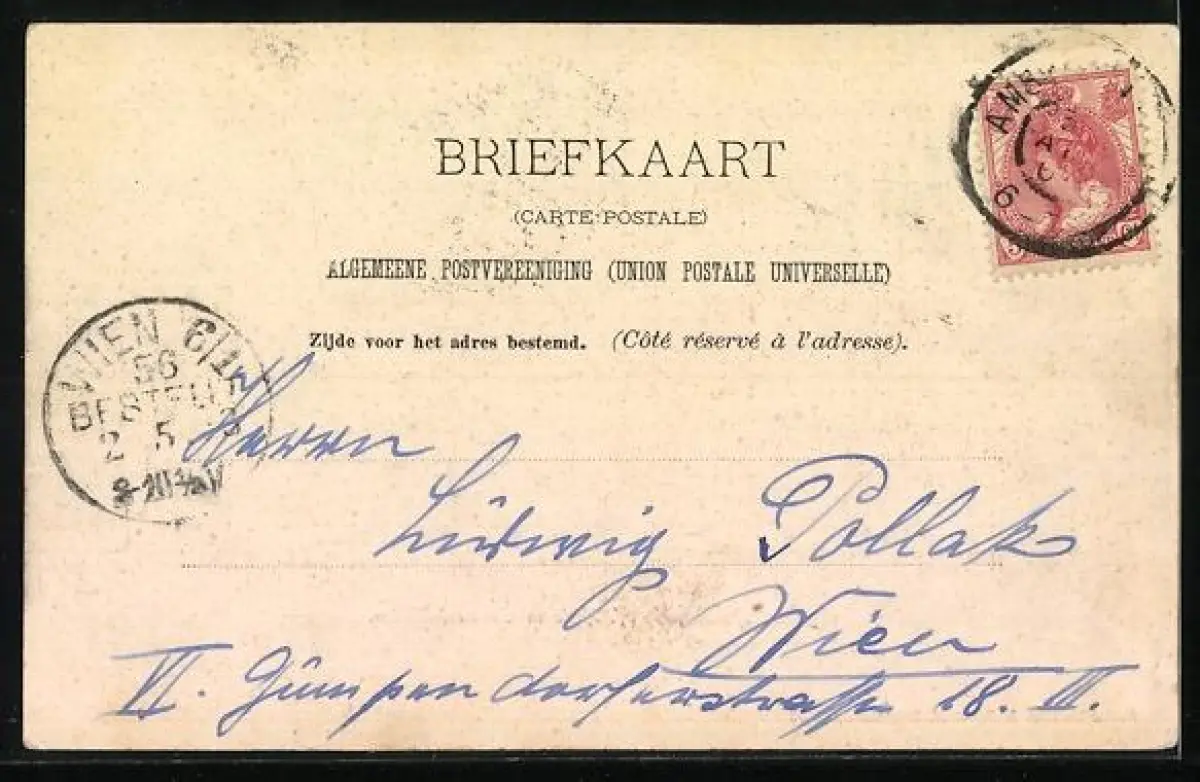 BRIEFKAART
(CARTE POSTALE)
ALGEMEENE POSTVEREENIGING (UNION POSTALE UNIVERSELLE)
Zijde voor het adres bestemd. (Côté réservé à l'adresse).
AMS
6
WIEN 6/1
56
BESTELLT
2 5
Herrn
Ludwig Pollak
Wien
VI. Gumpendorferstrasse 18. II.